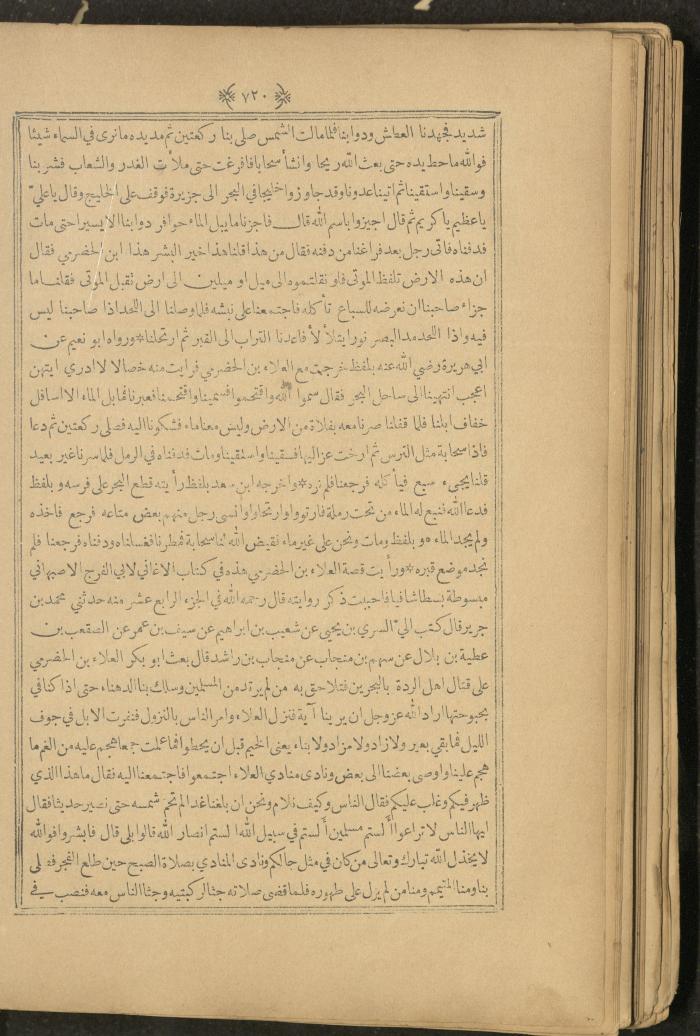 ٧٢٠
شديد فجهدنا العطاش ودوابنا فلما مالت الشمس صلى بنا ركعتين ثم مد يده ما نرى في السماء شيئا
فوالله ما حط يده حتى بعث الله ريحا وانشأ سحابا فافرغت حتى ملأت الغدر والشعاب فشربنا
وسقينا واستقينا ثم اتينا عدونا وقد جاوزوا خليجا في البحر الى جزيرة فوقف على الخليج وقال ياعليّ
ياعظيم ياكريم ثم قال اجيزوا باسم الله قال فاجزنا ما يبل الماء حوافر دوابنا الا يسيرا حتى مات
فدفناه فاتى رجل بعد فراغنا من دفنه فقال من هذا قلنا هذا خير البشر هذا ابن الحضرمي فقال
ان هذه الارض تلفظ الموتى فلو نقلتموه الى ميل او ميلين الى ارض تقبل الموتى فقلنا ما
جزاء صاحبنا ان نعرضه للسباع تأكله فاجتمعنا على نبشه فلما وصلنا الى اللحد اذا صاحبنا ليس
فيه واذا اللحد مد البصر نور ايتلألأ فاعدنا التراب الى القبر ثم ارتحلنا * ورواه ابو نعيم عن
ابي هريرة رضي الله عنه بلفظ خرجت مع العلاء بن الحضرمي فرايت منه خصالا لا ادري ايتهن
اعجب انتهينا الى ساحل البحر فقال سموا الله واقتحموا فسمينا واقتحمنا فعبرنا فما بل الماء الا اسافل
خفاف ابلنا فلما قفلنا صرنا معه بفلاة من الارض وليس معنا ماء فشكونا اليه فصلى ركعتين ثم دعا
فاذا سحابة مثل الترس ثم ارخت عزاليها فسقينا واستقينا ومات فدفناه في الرمل فلما سرنا غير بعيد
قلنا يجيء سبع فيأكله فرجعنا فلم نره * واخرجه ابن سعد بلفظ رأيته قطع البحر على فرسه وبلفظ
فدعا الله فنبع له الماء من تحت رملة فارتووا وارتحلوا وانسى رجل منهم بعض متاعه فرجع فاخذه
ولم يجد الماء * وبلفظ ومات ونحن على غير ماء نقيض الله لنا سحابة فمطرنا فغسلناه ودفناه فرجعنا فلم
نجد موضع قبره * ورأيت قصة العلاء بن الحضرمي هذه في كتاب الاغاني لابي الفرج الاصبهاني
مبسوطة بسطا شافيا فاحببت ذكر روايته قال رحمه الله في الجزء الرابع عشر منه حدثني محمد بن
جرير قال كتب اليّ السري بن يحيى عن شعيب بن ابراهيم عن سيف بن عمر عن الصقعب بن
عطية بن بلال عن سهم بن منجاب عن منجاب بن راشد قال بعث ابو بكر العلاء بن الحضرمي
على قتال اهل الردة بالبحرين فتلاحق به من لم يرتد من المسلمين وسلك بنا الدهناء حتى اذا كنا في
بحبوحتها اراد الله عز وجل ان يرينا آية فنزل العلاء وامر الناس بالنزول فنفرت الابل في جوف
الليل فما بقي بعير ولا زاد ولا مزاد ولا بناء يعنى الخيم قبل ان يحطوا فما علمت جمعا هجم عليه من الغم ما
هجم علينا واوصى بعضنا الى بعض ونادى منادي العلاء اجتمعوا فاجتمعنا اليه نقال ما هذا الذي
ظهر فيكم وغلب عليكم فقال الناس وكيف نلام ونحن ان بلغنا غدا لم تحم شمسه حتى نصير حديثا فقال
ايها الناس لا تراعوا ألستم مسلمين ألستم في سبيل الله الستم انصار الله قالوا بلى قال فابشروا فوالله
لا يخذل الله تبارك وتعالى من كان في مثل حالكم ونادى المنادي بصلاة الصبح حين طلع الفجر فصلى
بنا ومنا المتيمم ومنا من لم يزل على طهوره فلما قضى صلاته جثا لركبتيه وجثا الناس معه فنصب في